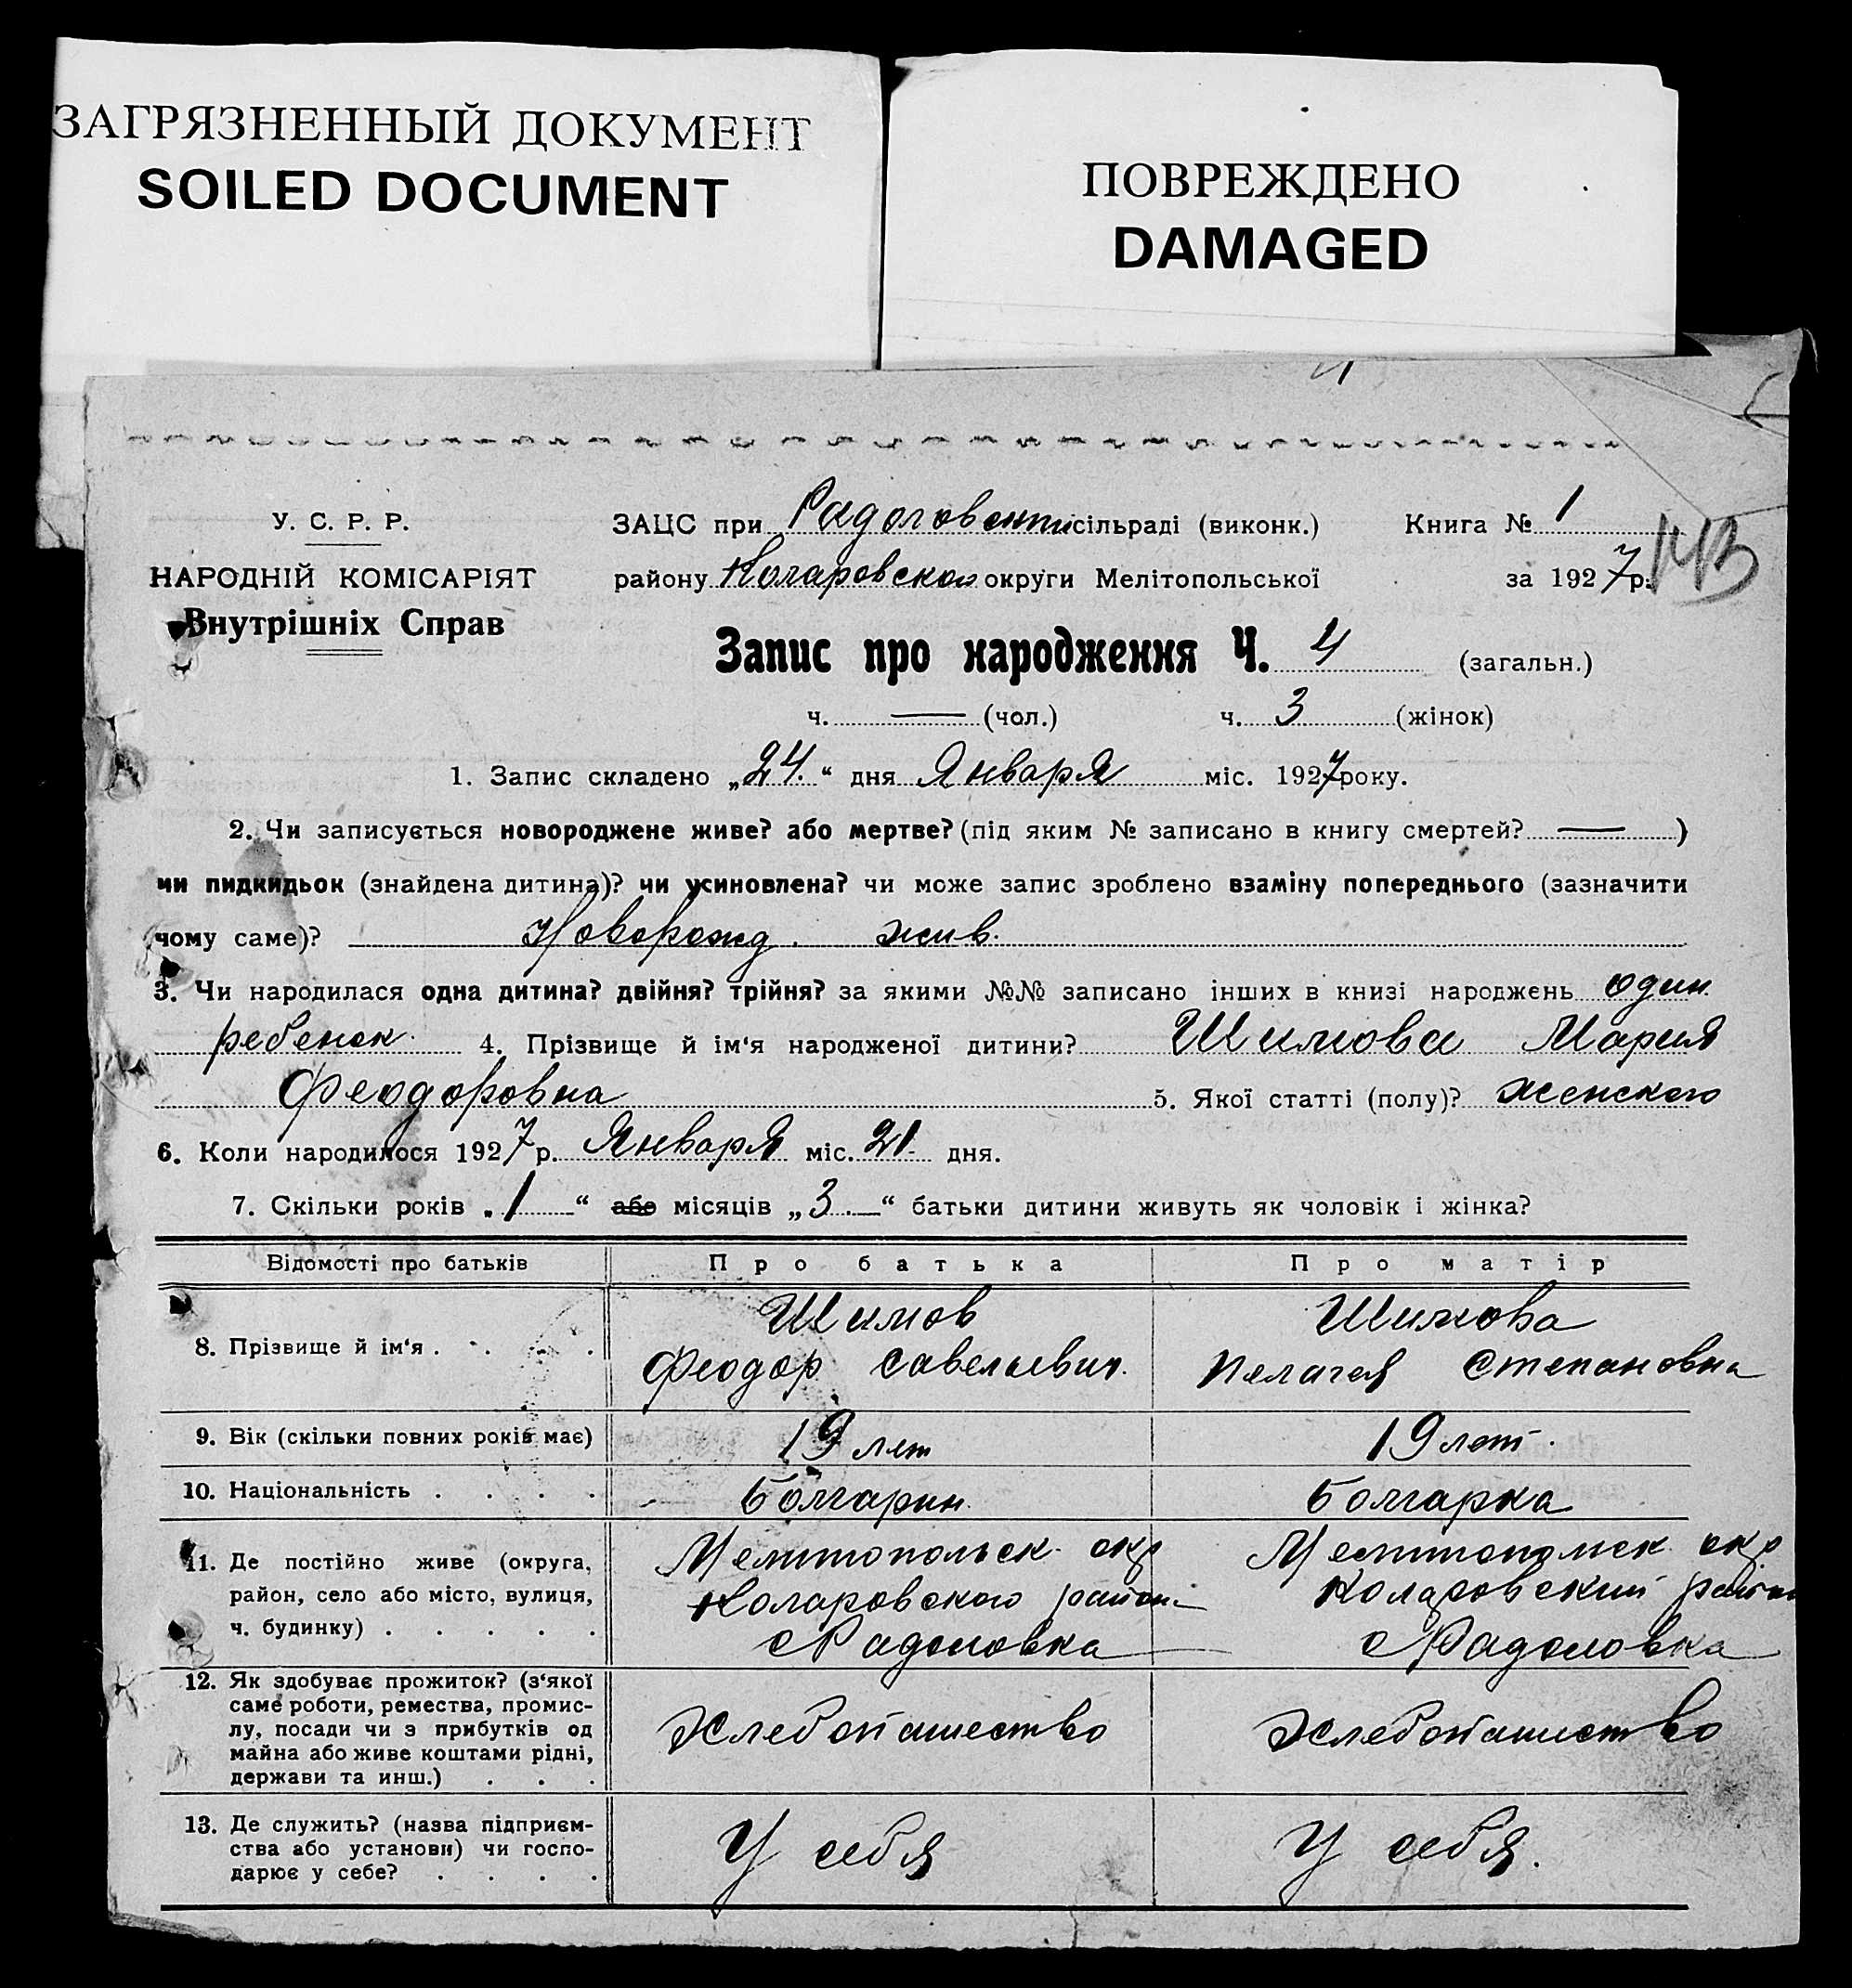 ЗАГРЯЗНЕННЫЙ ДОКУМЕНТ
SOILED DOCUMENT
ПОВРЕЖДЕНО
DAMAGED
У. С. Р. Р.
НАРОДНІЙ КОМІСАРІЯТ
Внутрішніх Справ
ЗАЦС при Радоловск сільраді (виконк.) Книга № 1
району Коларовского округи Мелітопольської за 1927 р.
Запис про народження Ч. 4 (загальн.)
ч. — (чол.) ч. 3 (жінок)
1. Запис складено „24." дня Января міс. 1927 року.
2. Чи записується новороджене живе? або мертве? (під яким № записано в книгу смертей? — )
чи пидкидьок (знайдена дитина)? чи усиновлена? чи може запис зроблено взаміну попереднього (зазначити
чому саме)? Новорожд. жив.
3. Чи народилася одна дитина? двійня? трійня? за якими №№ записано інших в книзі народжень один
ребенок. 4. Прізвище й ім'я народженої дитини? Шимова Мария
Феодоровна 5. Якої статті (полу)? женского
6. Коли народилося 1927 р. Января міс. 21. дня.
7. Скільки років „1" або місяців „3.—" батьки дитини живуть як чоловік і жінка?
Відомості про батьків Про батька Про матір
8. Прізвище й ім'я . . . .
Шимов
Феодор Савельевич.
Шимова
Пелагея Степановна
9. Вік (скільки повних років має) 19 лет 19 лет.
10. Національність . . . . Болгарин. Болгарка
11. Де постійно живе (округа,
район, село або місто, вулиця,
ч. будинку) . . . . .
Мелитопольск. окр
Коларовского район
с Радоловка
Мелитопольск. окр.
Коларовский район
с Радоловка
12. Як здобуває прожиток? (з'якої
саме роботи, ремества, промис-
лу, посади чи з прибутків од
майна або живе коштами рідні,
держави та инш.) . . .
Хлебопашество
Хлебопашество
13. Де служить? (назва підприєм-
ства або установи) чи госпо-
дарює у себе? . . . .
У себя
У себя.